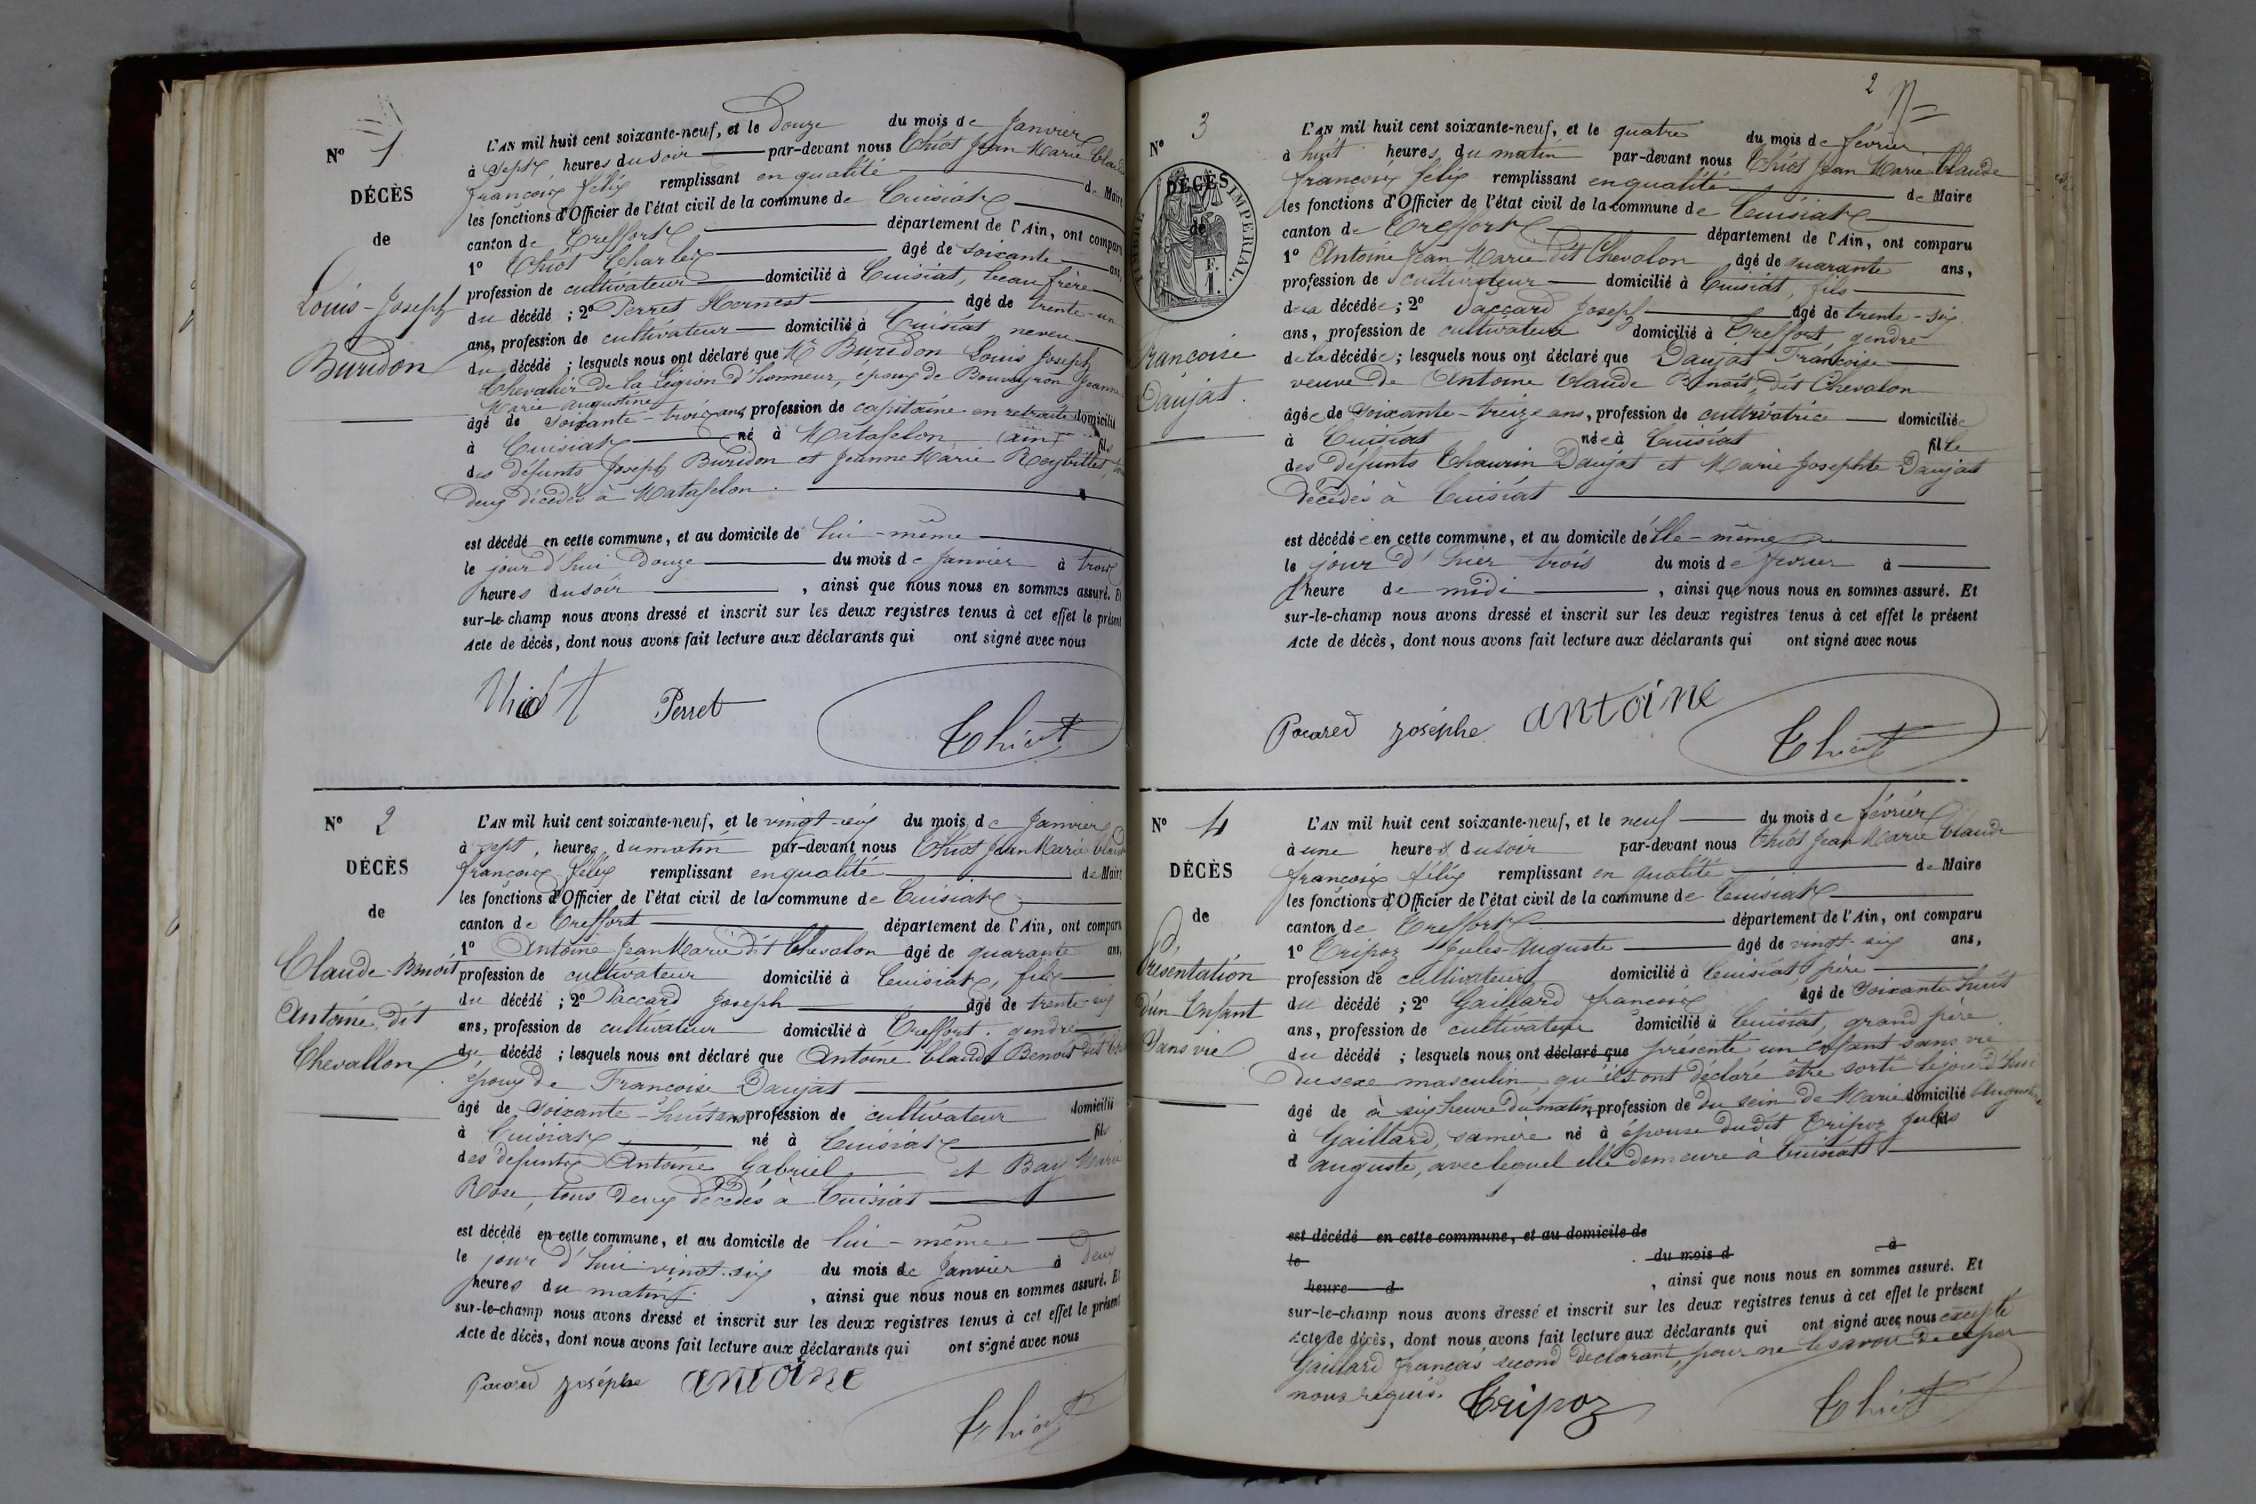 N° 1
DÉCÈS
de
Louis-Joseph
Buridon
L'AN mil huit cent soixante-neuf, et le Douze du mois de Janvier
à sept heures du soir par-devant nous Chiot Jean Marie Claude
françois félix remplissant en qualité de Maire
les fonctions d'Officier de l'état civil de la commune de Cuisiat
canton de Treffort département de l'Ain, ont comparu
1° Chiot Charles âgé de soixante ans,
profession de cultivateur domicilié à Cuisiat, beau frère
du décédé ; 2° Perret Hernest âgé de trente-un
ans, profession de cultivateur domicilié à Cuisiat neveu
du décédé ; lesquels nous ont déclaré que Mr Buridon Louis Joseph
Chevalier de la Légion d'honneur, époux de Bouveyron Jeanne
Marie Augustine
âgé de soixante-trois ans profession de capitaine en retraite domicilié
à Cuisiat né à Matafelon (ain) fils
des défunts Joseph Buridon et Jeanne Marie Reybillet, tous
deux décédés à Matafelon.
est décédé en cette commune, et au domicile de lui-même
le jour d'hui Douze du mois de Janvier à trois
heures du soir , ainsi que nous nous en sommes assuré. Et
sur-le-champ nous avons dressé et inscrit sur les deux registres tenus à cet effet le présent
Acte de décès, dont nous avons fait lecture aux déclarants qui ont signé avec nous
Chiot Perret
Chiot
N° 2
DÉCÈS
de
Claude-Benoit
Antoine dit
Chevallon
L'AN mil huit cent soixante-neuf, et le vingt-six du mois de Janvier
à sept heures du matin par-devant nous Chiot Jean Marie Claude
françois félix remplissant en qualité de Maire
les fonctions d'Officier de l'état civil de la commune de Cuisiat
canton de Treffort département de l'Ain, ont comparu
1° Antoine Jean Marie dit Chevalon âgé de quarante ans,
profession de cultivateur domicilié à Cuisiat, fils
du décédé ; 2° Paccard Joseph âgé de trente-six
ans, profession de cultivateur domicilié à Treffort, gendre
du décédé ; lesquels nous ont déclaré que Antoine Claude Benoit dit
époux de Francoise Daujat
âgé de soixante-huit ans profession de cultivateur domicilié
à Cuisiat né à Cuisiat fils
des defunts Antoine Gabriel et Bay Marie
Rose, tous deux décédés à Cuisiat
est décédé en cette commune, et au domicile de lui-même
le jour d'hui vingt-six du mois de Janvier à Deux
heures du matin. , ainsi que nous nous en sommes assuré. Et
sur-le-champ nous avons dressé et inscrit sur les deux registres tenus à cet effet le présent
Acte de décès, dont nous avons fait lecture aux déclarants qui ont signé avec nous
Pacared Joséphe antoine
Chiot
2
N° 3
DÉCÈS
de
TIMBRE IMPÉRIAL
Francoise
Daujat.
L'AN mil huit cent soixante-neuf, et le quatre du mois de février
à huit heures du matin par-devant nous Chiot Jean Marie Claude
françois félix remplissant en qualité de Maire
les fonctions d'Officier de l'état civil de la commune de Cuisiat
canton de Treffort département de l'Ain, ont comparu
1° Antoine Jean Marie dit Chevalon âgé de quarante ans,
profession de cultivateur domicilié à Cuisiat, fils
de la décédée ; 2° Paccard Joseph âgé de trente-six
ans, profession de cultivateur domicilié à Treffort, gendre
de la décédée ; lesquels nous ont déclaré que Daujat Françoise
veuve de Antoine Claude Benoit, dit Chevalon
âgée de soixante-treize ans, profession de cultivatrice domiciliée
à Cuisiat née à Cuisiat fille
des défunts Thaurin Daujat et Marie Josephte Daujat
décédés à Cuisiat
est décédée en cette commune, et au domicile d'elle-même
le jour d'hier trois du mois de février à
l'heure de midi , ainsi que nous nous en sommes assuré. Et
sur-le-champ nous avons dressé et inscrit sur les deux registres tenus à cet effet le présent
Acte de décès, dont nous avons fait lecture aux déclarants qui ont signé avec nous
Pacared joséphe antoine
Chiot
N° 4
DÉCÈS
de
Présentation
d'un Enfant
Sans vie
L'AN mil huit cent soixante-neuf, et le neuf du mois de février
à une heure du soir par-devant nous Chiot Jean Marie Claude
françois félix remplissant en qualité de Maire
les fonctions d'Officier de l'état civil de la commune de Cuisiat
canton de Treffort département de l'Ain, ont comparu
1° Tripoz Jules-Auguste âgé de vingt-six ans,
profession de cultivateur domicilié à Cuisiat, père
du décédé ; 2° Gaillard françois âgé de soixante huit
ans, profession de cultivateur domicilié à Cuisiat, grand père
du décédé ; lesquels nous ont déclaré que présenté un enfant sans vie
du sexe masculin qu'ils ont déclaré être sorti le jour d'hui
âgé de à six heure du matin profession de du sein de Marie domicilié Augustine
à Gaillard sa mère né à épouse dudit Tripoz Jules fils
d auguste, avec lequel elle demeure à Cuisiat
est décédé en cette commune, et au domicile de
le du mois d à
heure d , ainsi que nous nous en sommes assuré. Et
sur-le-champ nous avons dressé et inscrit sur les deux registres tenus à cet effet le présent
Acte de décès, dont nous avons fait lecture aux déclarants qui ont signé avec nous excepté
Gaillard françois second déclarant, pour ne le savoir de ce par
nous requis. Tripoz
Chiot